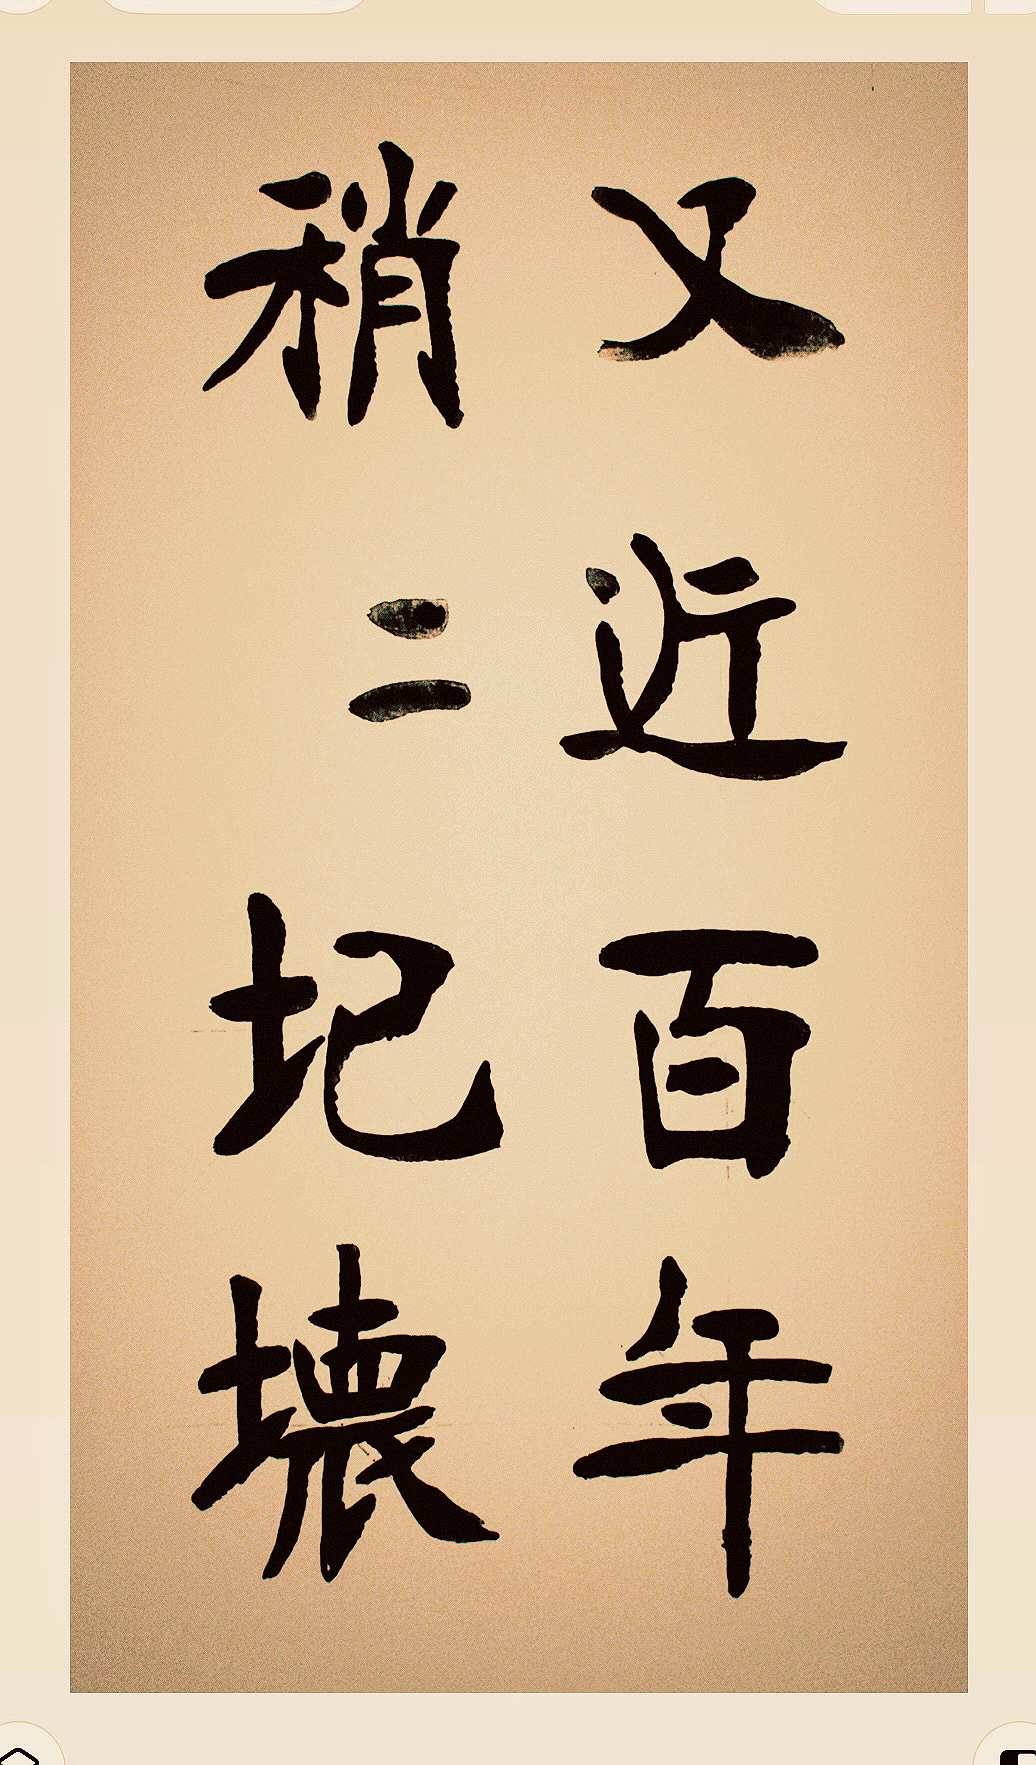 又近百年
稍〻圮壞